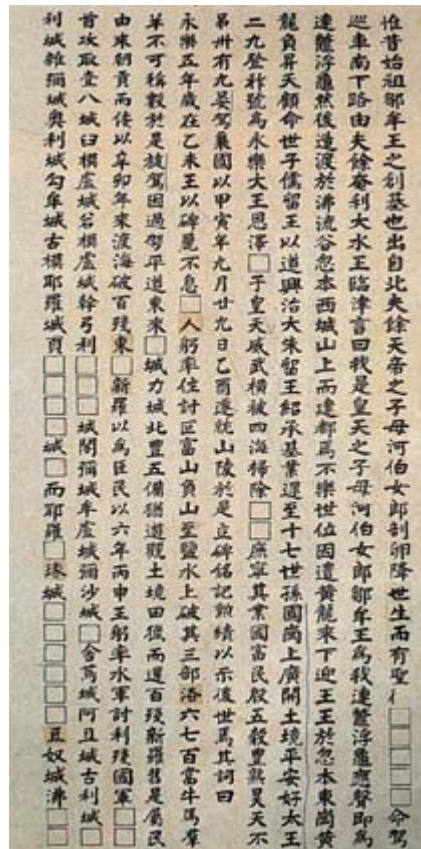 惟昔始祖鄒牟王之創基也出自北夫餘天帝之子母河伯女郎剖卵降世生而有聖亻□□□□命駕
巡車南下路由夫餘奄利大水王臨津言曰我是皇天之子母河伯女郎鄒牟王爲我連鼈浮龜應聲即爲
連鼈浮龜然後造渡於沸流谷忽本西城山上而建都焉不樂世位因遣黃龍來下迎王王於忽本東罡黃
龍負昇天顧命世子儒留王以道興治大朱留王紹承基業遝至十七世孫國罡上廣開土境平安好太王
二九登祚號爲永樂大王恩澤□于皇天威武橫被四海掃除□□庶寧其業國富民殷五穀豐熟昊天不
弔卅有九晏駕棄國以甲寅年九月廿九日乙酉遷就山陵於是立碑銘記勳績以示後世焉其詞曰
永樂五年歲在乙未王以碑麗不息□人躬率住討叵富山負山至鹽水上破其三部洛六七百當牛馬羣
羊不可稱數於是旋駕因過駕平道東來□城力城北豐五備猶遊觀土境田獵而還百殘新羅舊是屬民
由來朝貢而倭以辛卯年來渡海破百殘東□新羅以爲臣民以六年丙申王躬率水軍討利殘國軍□□
首攻取壹八城臼模盧城若模盧城幹弓利□□□城閣彌城牟盧城彌沙城□舍蔦城阿旦城古利城□
利城雜彌城奧利城勾牟城古模耶羅城頁□□□□城□而耶羅□瑑城□□□□□豆奴城沸□□